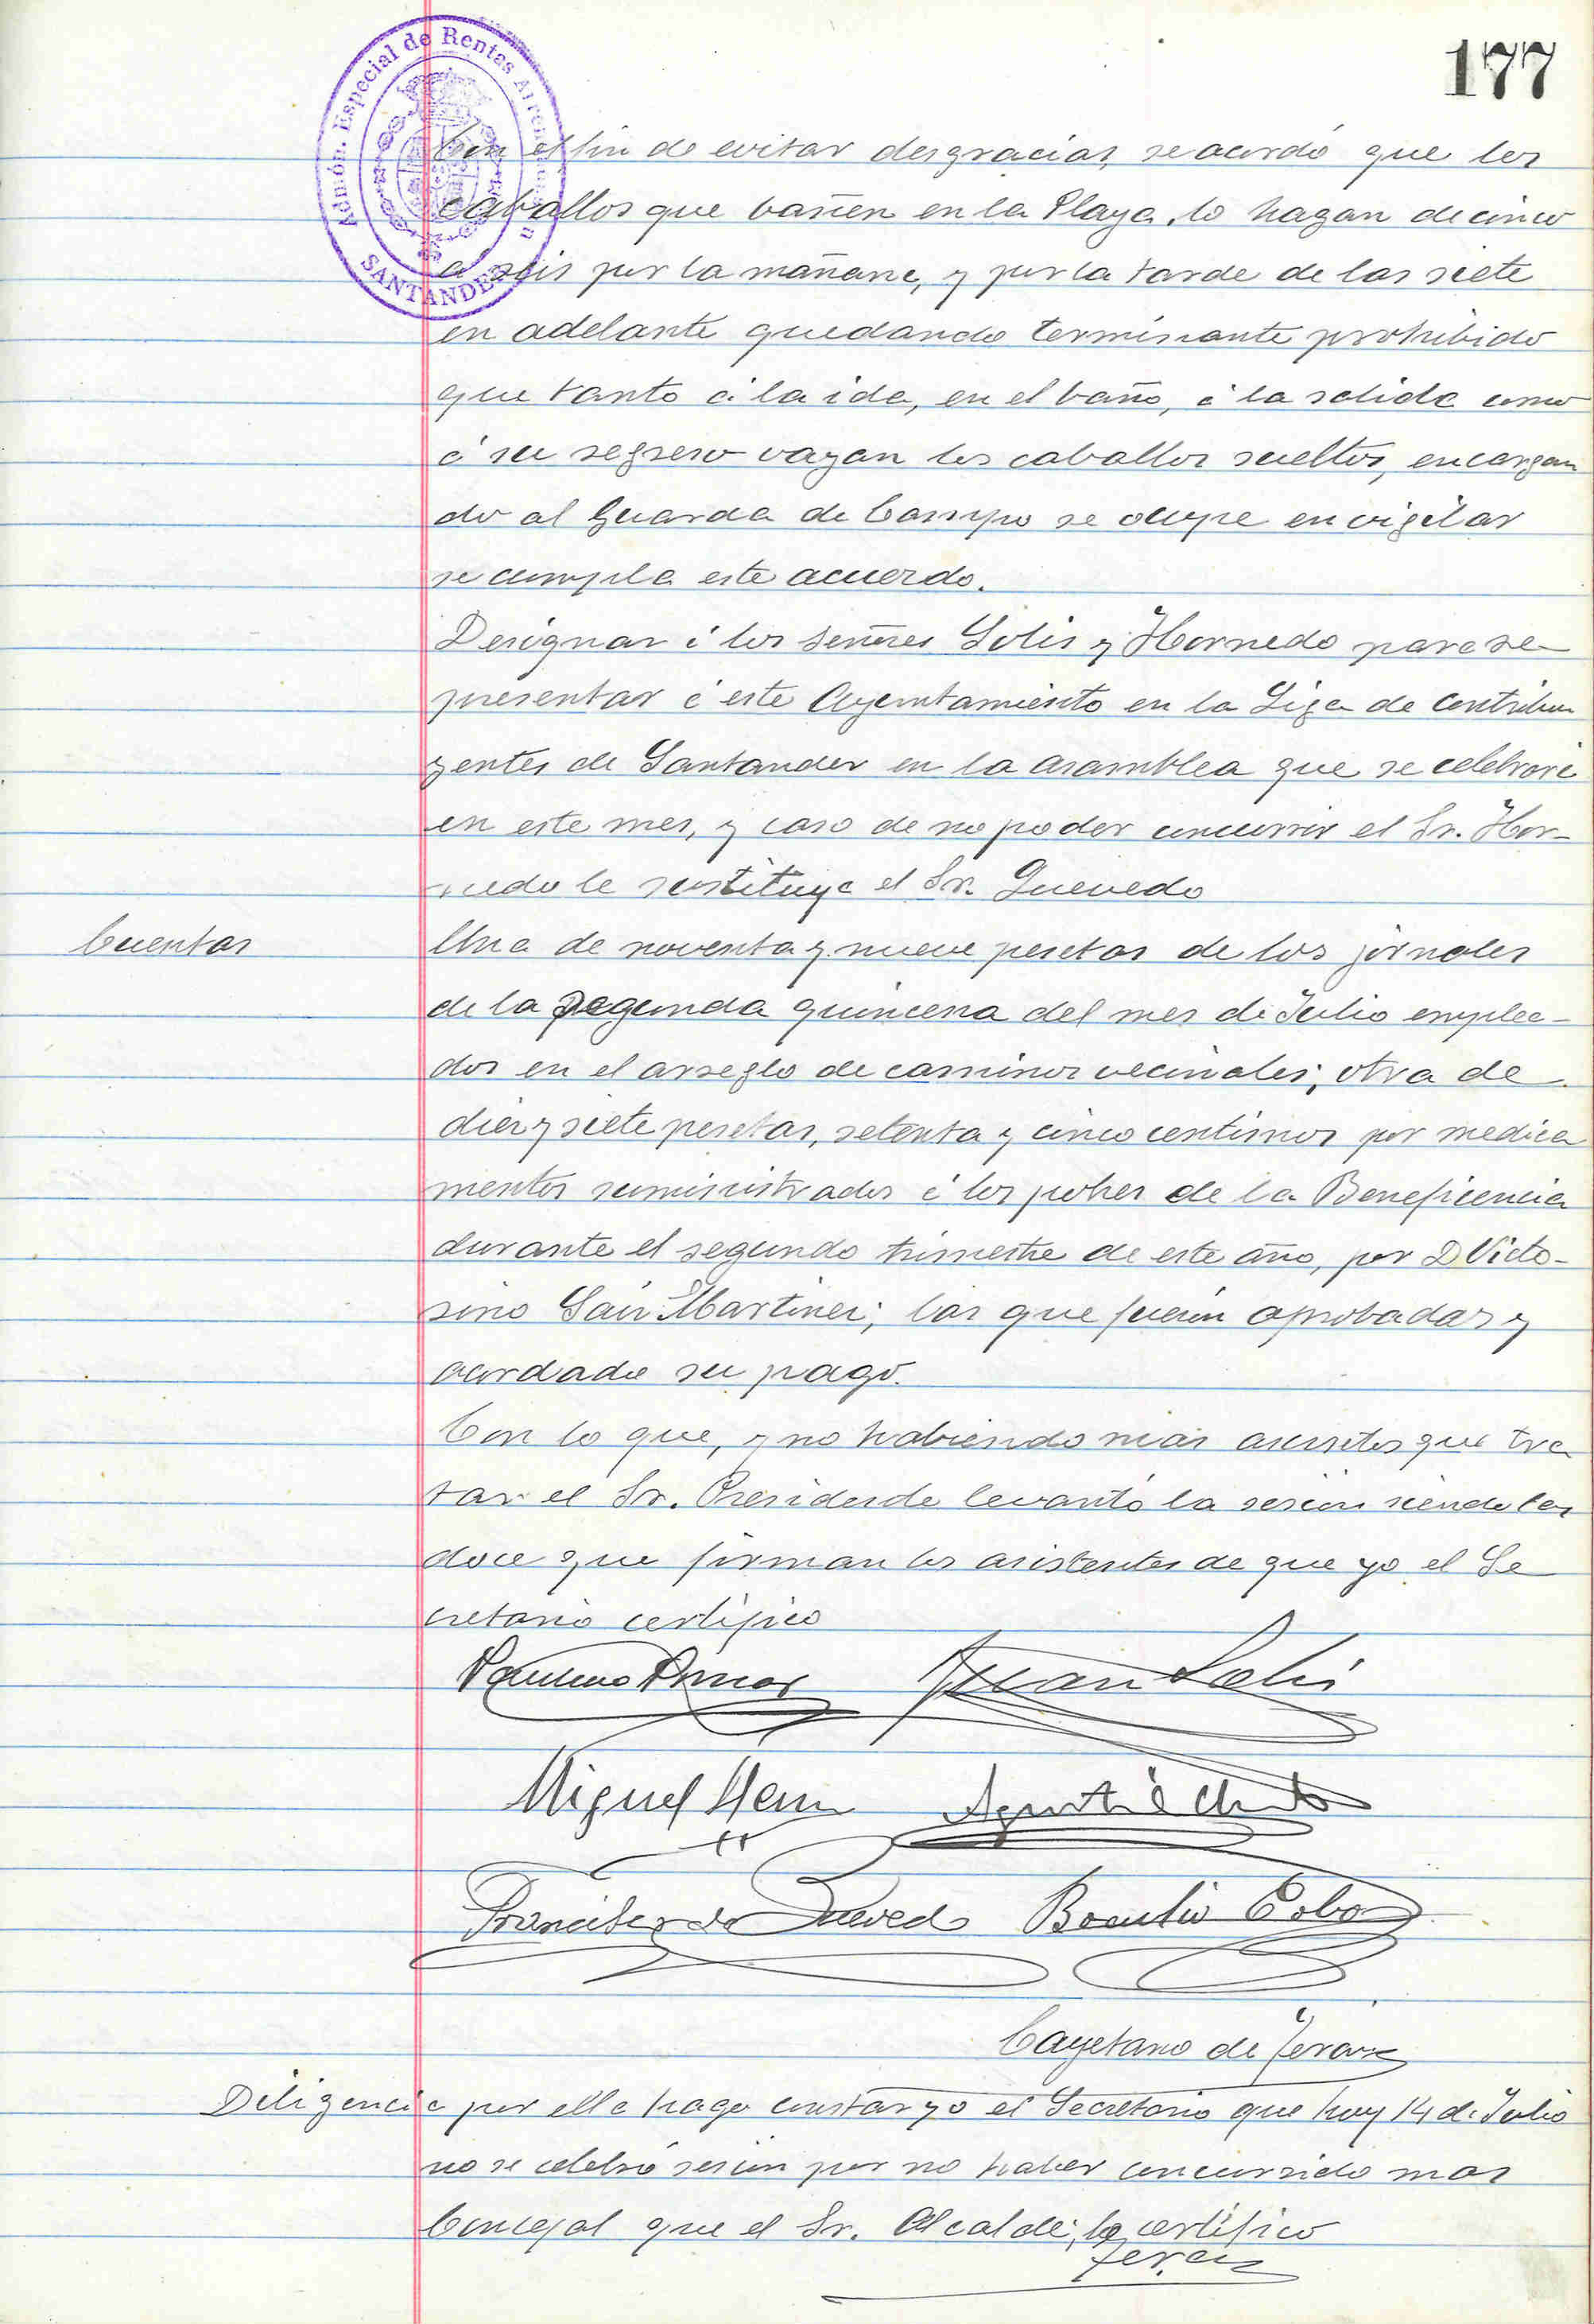 177
Admón. Especial de Rentas Arrendadas
SANTANDER
Con el fin de evitar desgracias, se acordó que los
caballos que bañen en la Playa, lo hagan de cinco
a seis por la mañana, y por la tarde de las siete
en adelante quedando terminante prohibido
que tanto á la ida, en el baño, á la salida como
á su regreso vayan los caballos sueltos, encargan
do al Guarda de Campo se ocupe en vigilar
se cumpla este acuerdo.
Designar á los señores Solis y Hornedo para re-
presentar á este Ayuntamiento en la Liga de contribu
yentes de Santander en la asamblea que se celebrará
en este mes, y caso de no poder concurrir el Sr. Hor-
nedo le sustituya el Sr. Quevedo
Cuentas
Una de noventa y nueve pesetas de los jornales
de la segunda quincena del mes de Julio emplea-
dos en el arreglo de caminos vecinales; otra de
diez y siete pesetas, setenta y cinco centimos por medica
mentos suministrados á los pobres de la Beneficencia
durante el segundo trimestre de este año, por D Victo-
rino San Martinez; las que fueron aprobadas y
acordado su pago.
Con lo que, y no habiendo más asuntos que tra
tar el Sr. Presidente levantó la sesión siendo las
doce que firman los asistentes de que yo el Se
cretario certifico
Juan Solis
Miguel
Francisco de Quevedo Braulio Cobo
Cayetano de Jerez
Diligencia por ella hago constar yo el Secretario que hoy 14 de Julio
no se celebró sesion por no haber concurrido mas
Concejal que el Sr. Alcalde; lo certifico
Jerez